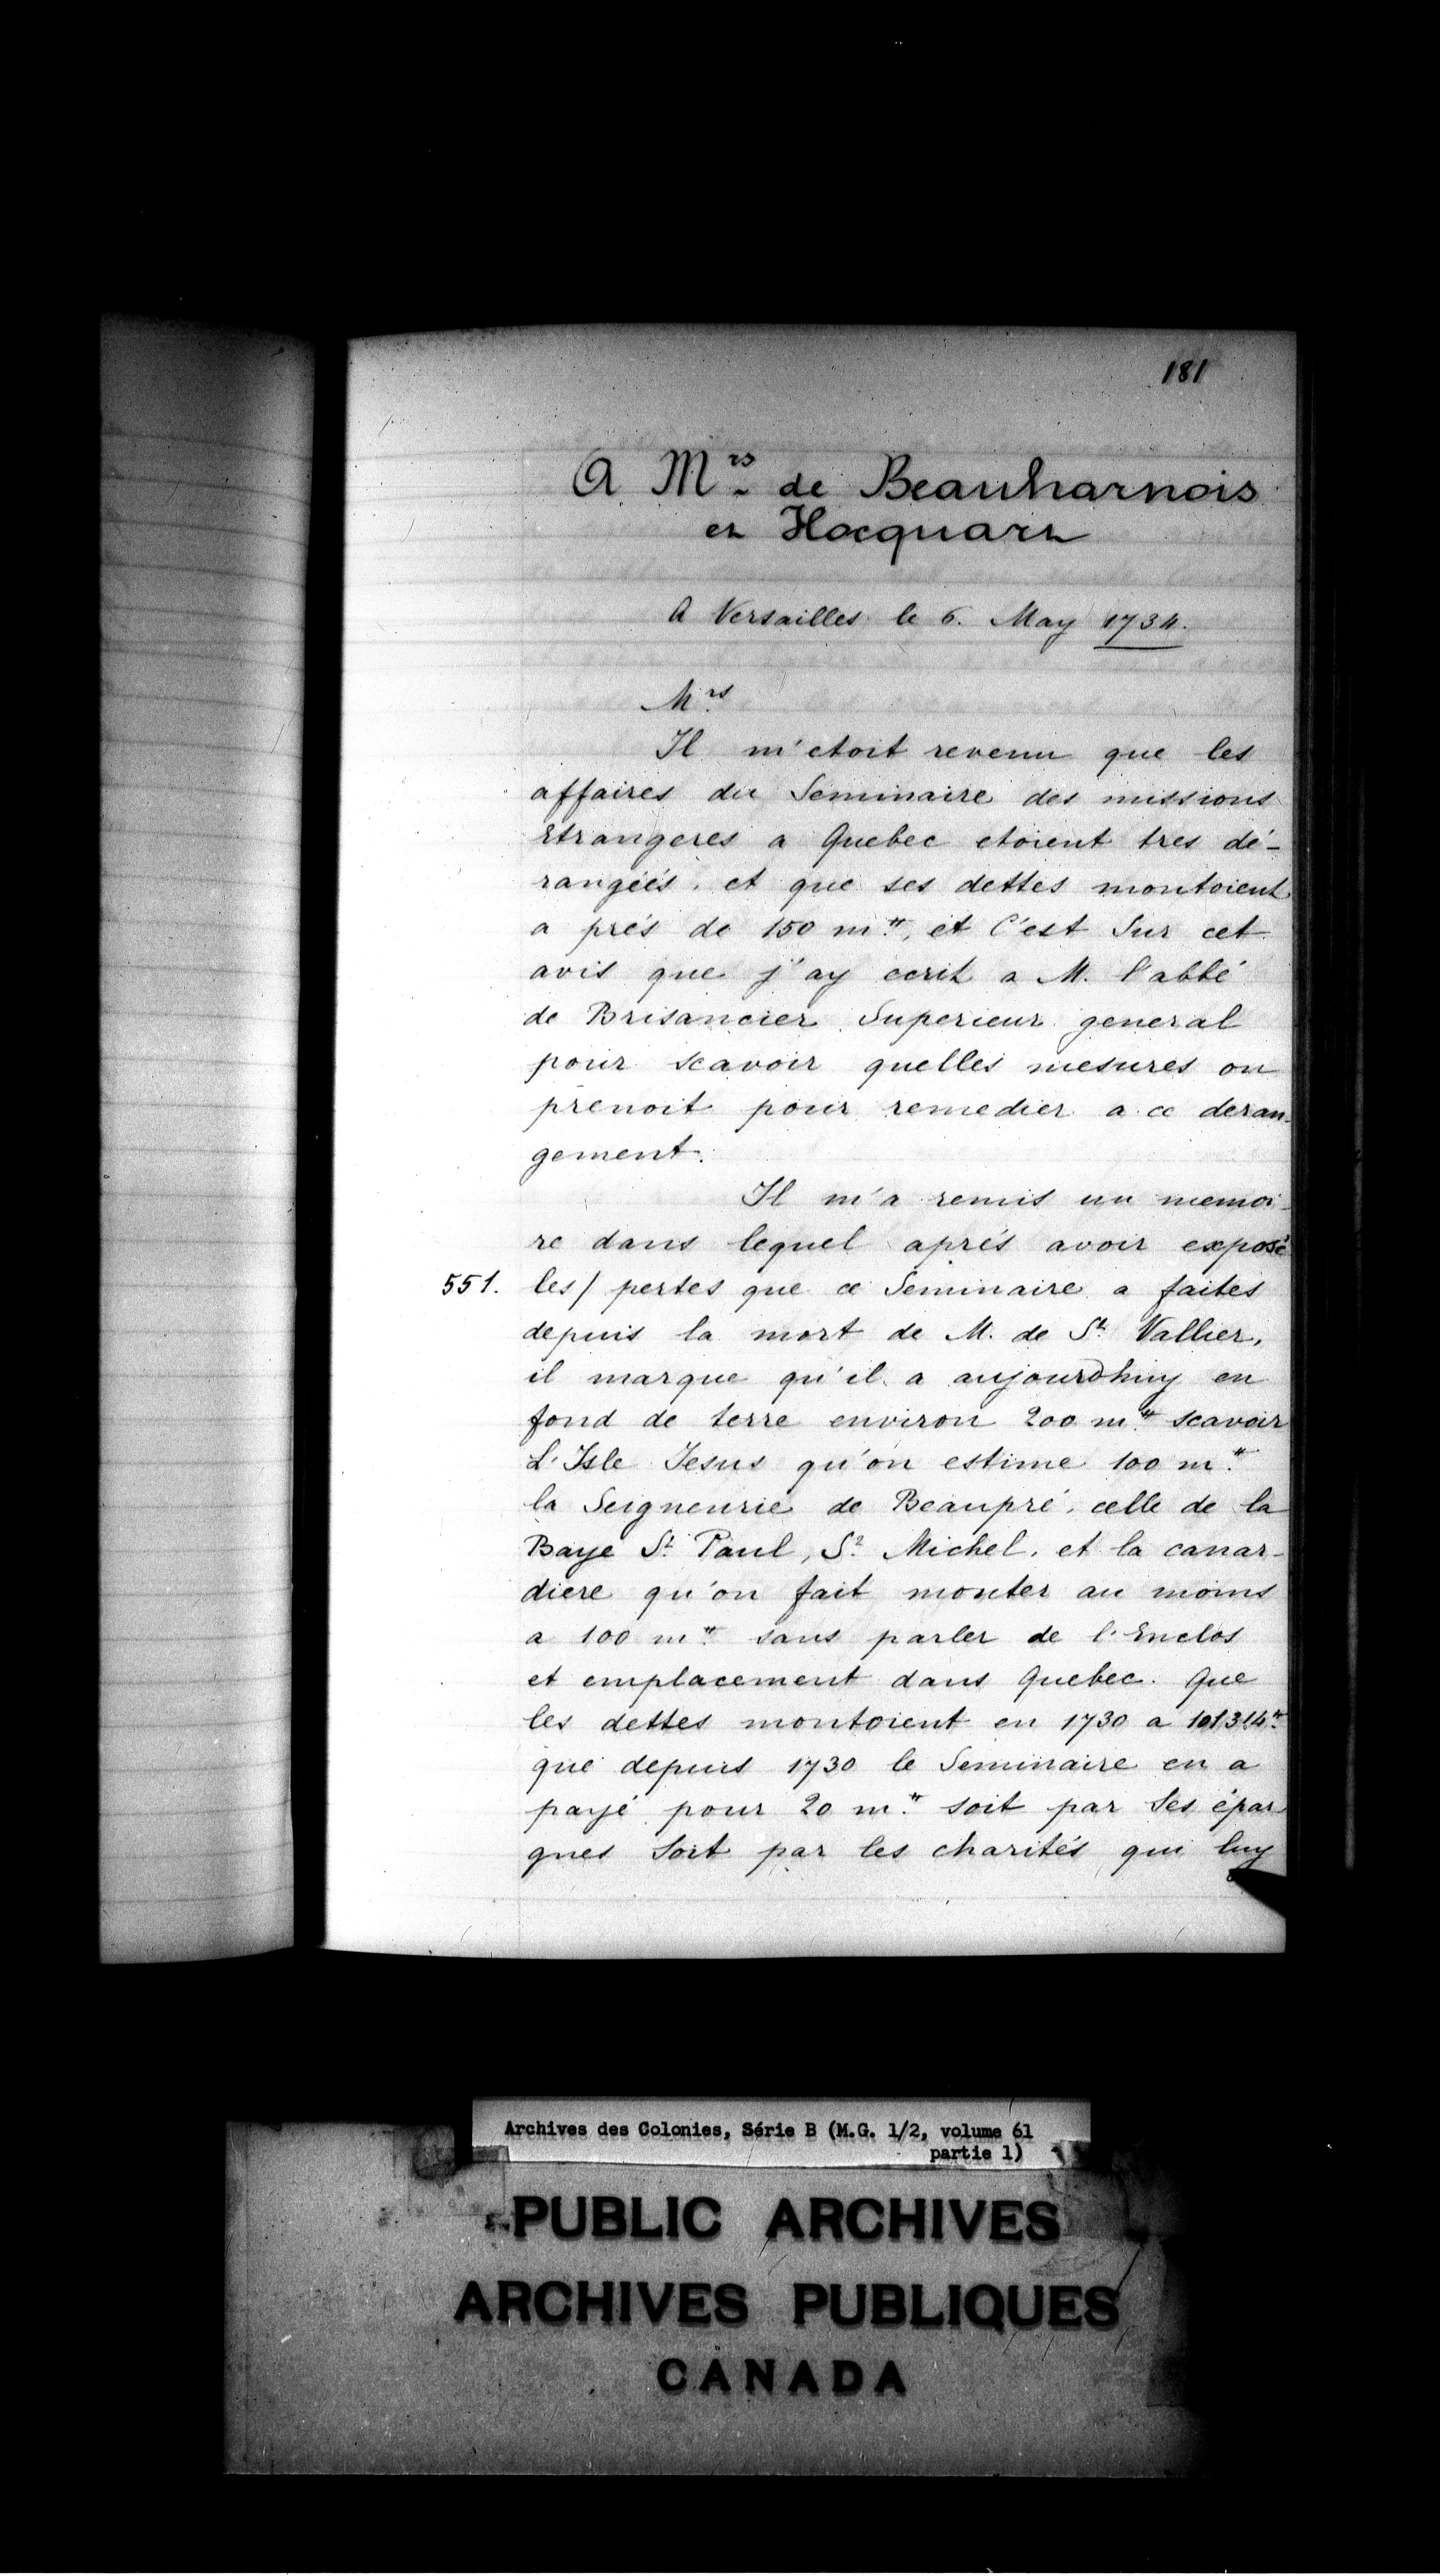 181
A M.rs de Beauharnois
et Hocquart
A Versailles le 6. May 1734.
M.rs
Il m'etoit revenu que les
affaires du Seminaire des missions
Etrangeres a Quebec etoient tres dé-
rangéés, et que ses dettes montoient
a prés de 150 m.#, et C'est Sur cet
avis que j'ay ecrit a M. l'abbé
de Brisancier Superieur general
pour scavoir quelles mesures on
prenoit pour remedier a ce deran-
gement.
Il m'a remis un memoi-
re dans lequel aprés avoir exposé
551. les/ pertes que ce Seminaire a faites
depuis la mort de M. de St. Vallier,
il marque qu'il a aujourdhuy en
fond de terre environ 200 m.# scavoir
L'Isle Jesus qu'on estime 100 m.#
la Seigneurie de Beaupré, celle de la
Baye St. Paul, St. Michel, et la canar-
diere qu'on fait monter au moins
a 100 m.# sans parler de l'Enclos
et emplacement dans Quebec. Que
les dettes montoient en 1730 a
que depuis 1730 le Seminaire en a
payé pour 20 m.# soit par Ses épar
gnes Soit par les charités qui luy
Archives des Colonies, Série B (M.G. 1/2, volume 61
partie 1)
PUBLIC ARCHIVES
ARCHIVES PUBLIQUES
CANADA